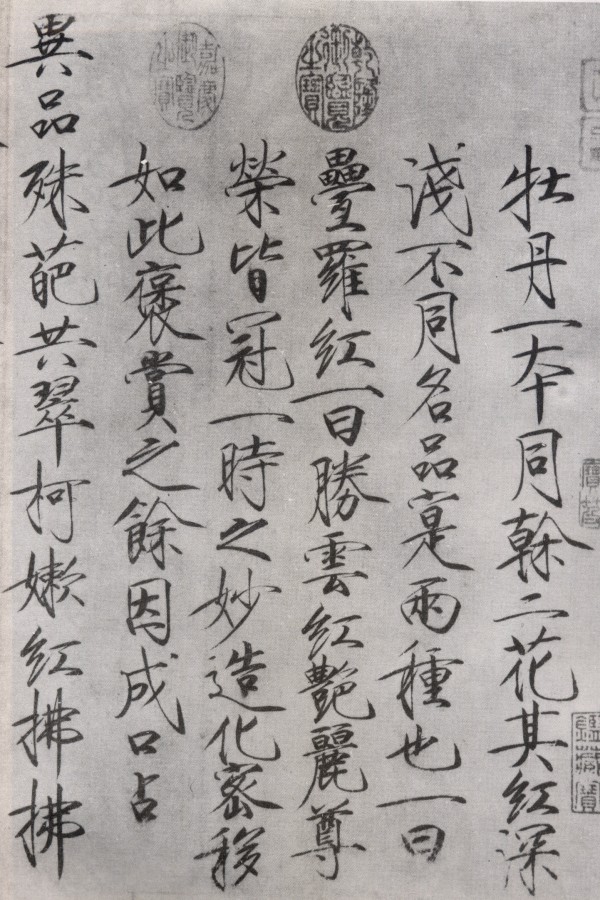 牡丹一本同榦二花其紅深
淺不同名品寔兩種也一曰
疊羅紅一曰勝雲紅艷麗尊
榮皆冠一時之妙造化密移
如此褒賞之餘因成口占
異品殊葩共翠柯嫩紅拂拂
乾隆御覽之寶
嘉慶御覽之寶